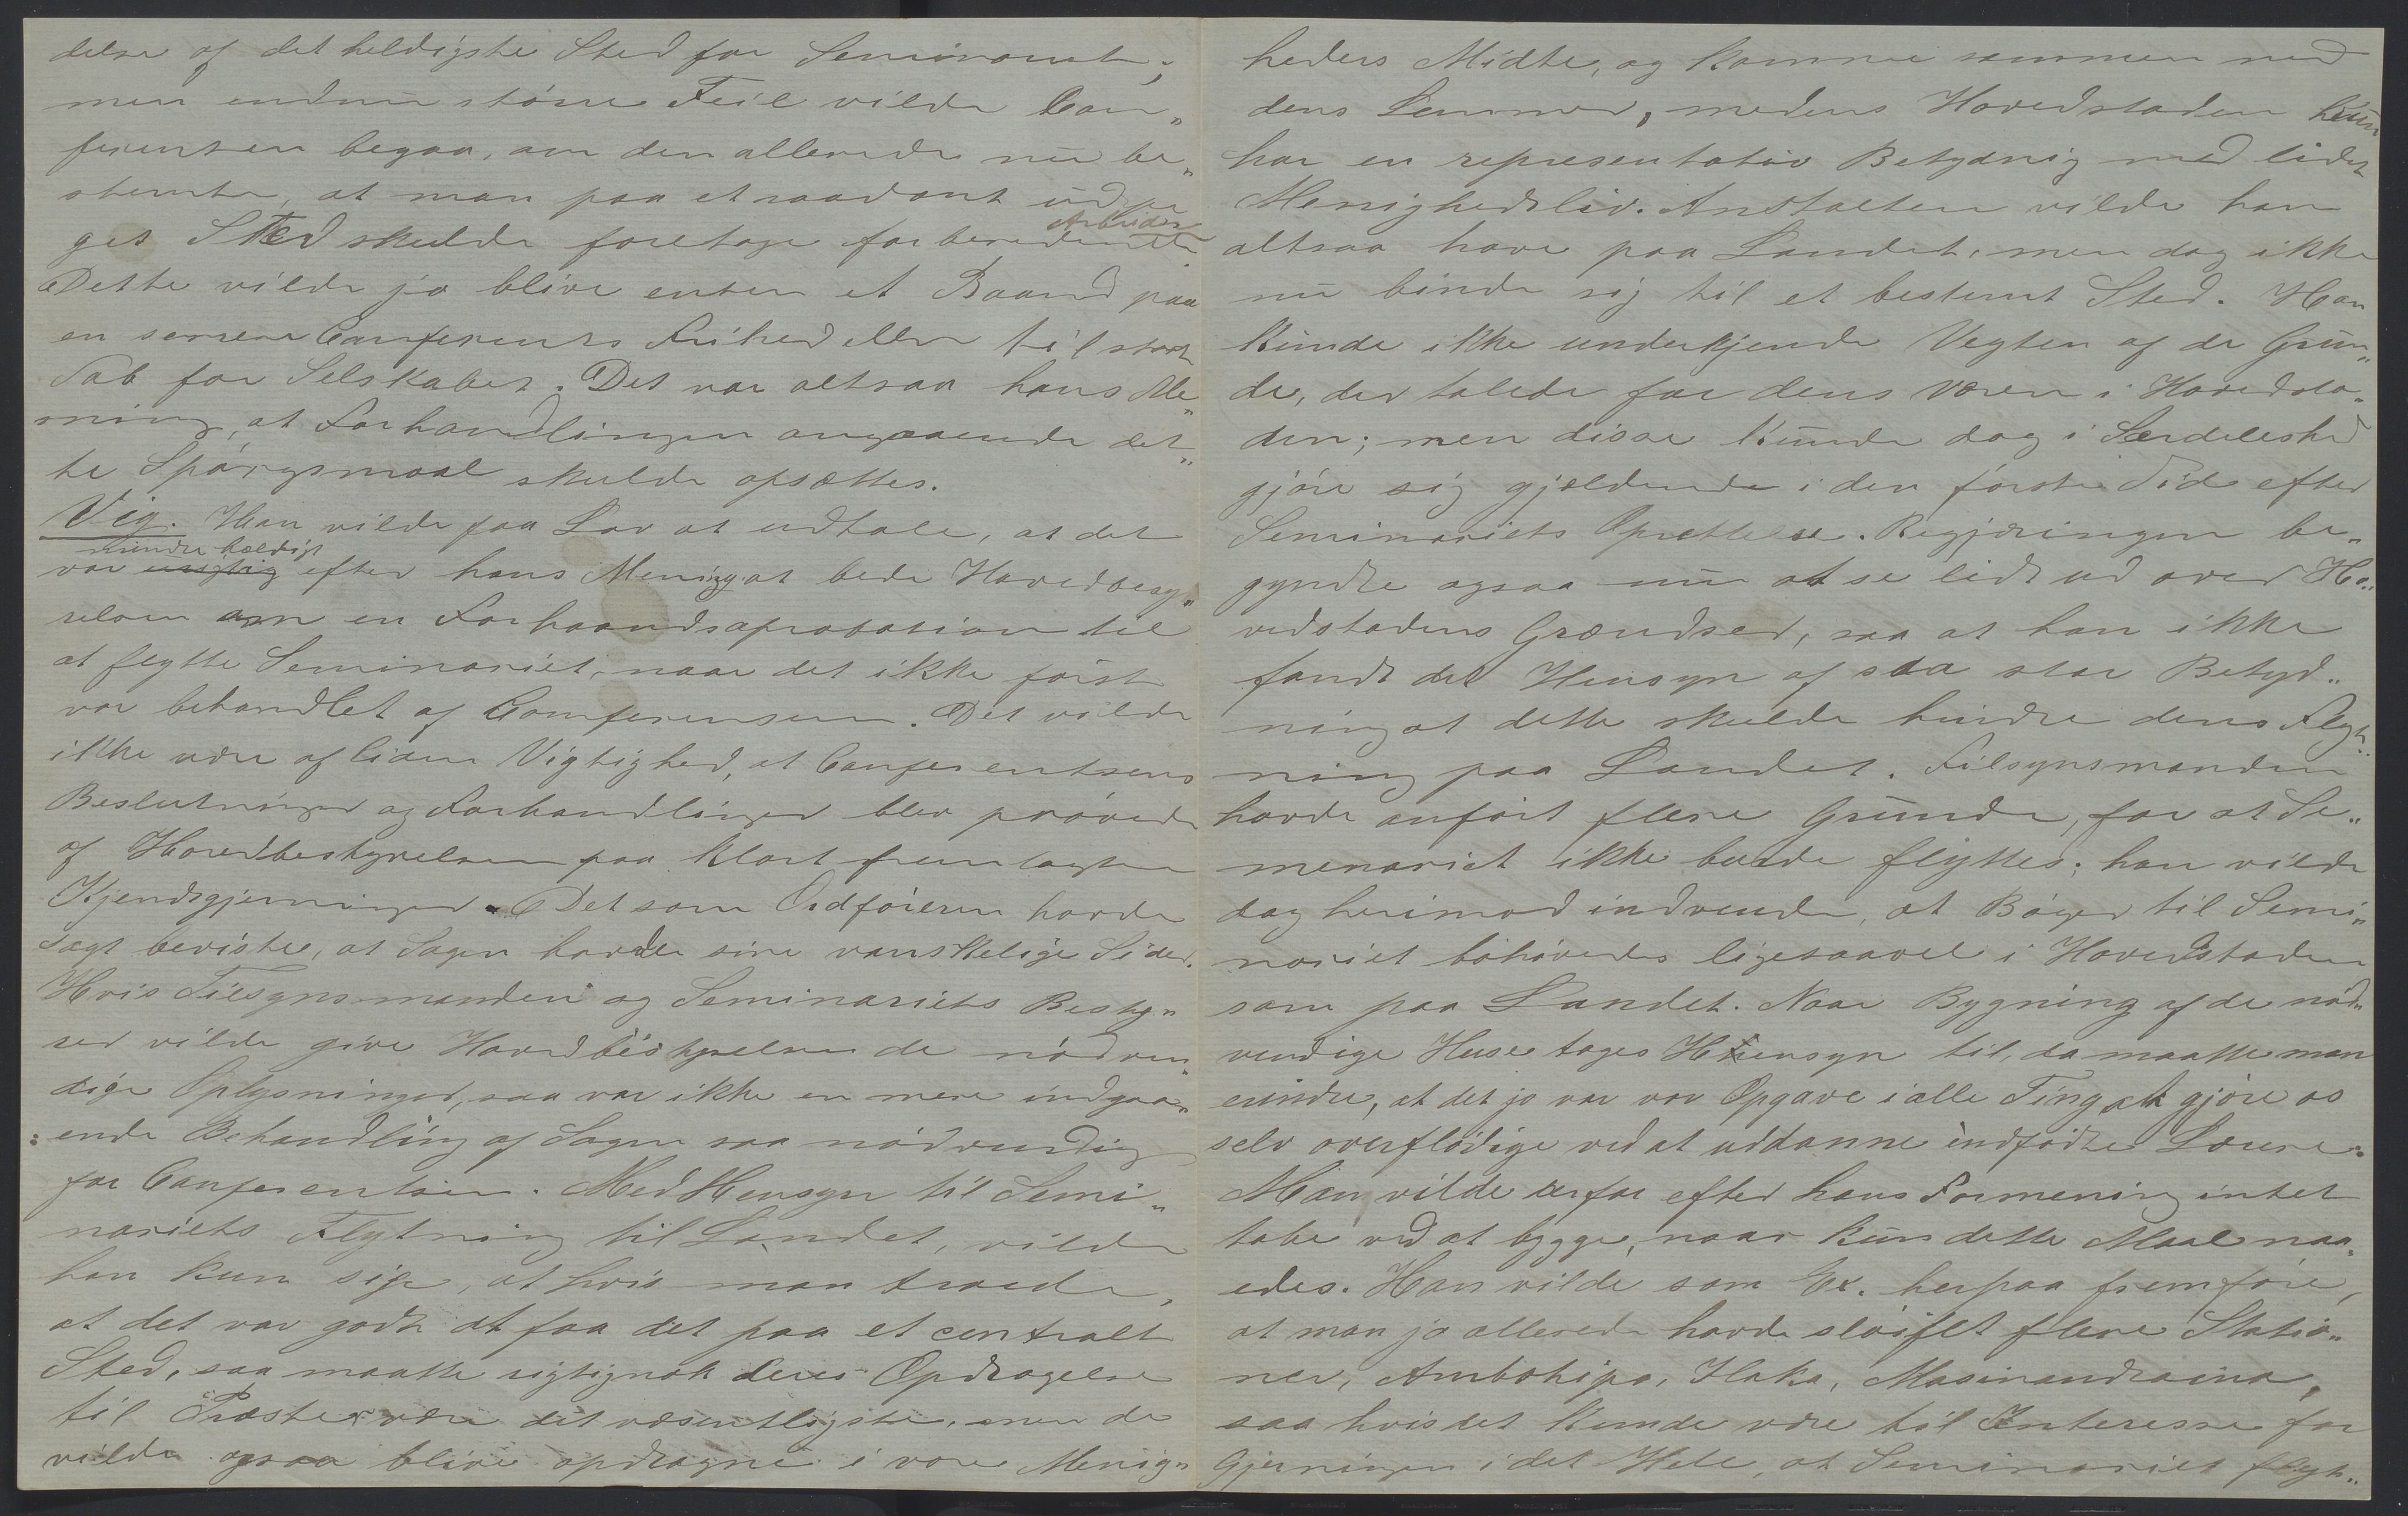 delse af det heldigste Sted for Seminariet;
men endnu større Feil vilde Con„
ferentsen begaa, om den allerede nu be„
stemte, at man paa et saadant udpe
get Sted skulde foretage forberedende
Arbeider
Dette vilde jo blive enten et Baand paa
en senere Conferents Frihed eller til stort
Tab for Selskabet. Det var altsaa hans Me„
ning, at Forhandlingen angaaende det„
te Spørgsmaal skulde opsættes.
Vig. Han vilde faa Lov at udtale, at det
mindre heldigt
var urigtig efter hans Mening at bede Hovedbesty„
relsen om en Forhaandsaprobation til
at flytte Seminariet, naar det ikke først
var behandlet af Conferensen. Det vilde
ikke være af liden Vigtighed, at Conferentsens
Beslutninger og Forhandlinger blev prøvede
af Hovedbestyrelsen paa klart fremlagte
Kjendsgjerninger. Det som Ordføreren havde
sagt beviste, at Sagen havde sine vanskelige Sider.
Hvis Tilsynsmanden og Seminariets Besty„
rer vilde give Hovedbestyrelsen de nødven„
dige Oplysninger, saa var ikke en mere indgaa„
ende Behandling af Sagen saa nødvendig
for Conferentsen. Med Hensyn til Semi„
nariets Flytning til Landet, vilde
han kun sige, at hvis man troede,
at det var godt at faa det paa et centralt
Sted, saa maatte rigtignok deres Opdragelse
til Præster være det væsentligste, men de
vilde ogsaa blive opdragne i vore Menig„
heders Midte, og komme sammen med
dens Lemmer, medens Hovedstaden kun
har en representativ Betydning med lidet
Menighedsliv. Anstalten vilde han
altsaa have paa Landet, men dog ikke
nu binde sig til et bestemt Sted. Han
kunde ikke underkjende Vegten af de Grun„
de, der talede for dens Væren i Hovedsta„
den; men disse kunde dog i Særdeleshed
gjøre sig gjældende i den første Tid efter
Seminariets Oprettelse. Regjeringen be„
gyndte ogsaa nu at se lidt ud over Ho„
vedstadens Grændser, saa at han ikke
fandt det Hensyn af saa stor Betyd„
ning at dette skulde hindre dens Flyt„
ning paa Landet. Tilsynsmanden
havde anført flere Grunde, for at Se„
menariet ikke burde flyttes; han vilde
dog herimod indvende, at Bøger til Semi„
nariet behøvedes ligesaavel i Hovedstaden
som paa Landet. Naar Bygning af de nød„
vendige Huse tages Hensyn til, da maatte man
erindre, at det jo var vor Opgave i alle Ting at gjøre os
selv overflødige ved at uddanne indfødte Lærere.
Man vilde derfor efter hans Formening intet
tabe ved at bygge, naar kun dette Maal naa„
edes. Han vilde som Ex. herpaa fremføre,
at man jo allerede havde sløifet flere Statio„
ner, Ambohipo, Ilaka, Masinandraina,
saa hvis det kunde være til Interesse for
Gjerningen i det Hele, at Seminariet flyt„